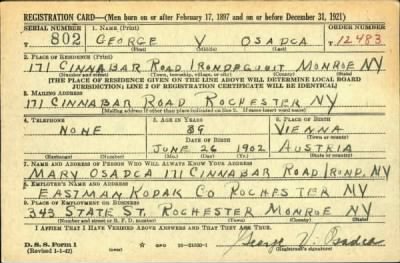 REGISTRATION CARD—(Men born on or after February 17, 1897 and on or before December 31, 1921)
SERIAL NUMBER 1. NAME (Print) ORDER NUMBER
T 802 GEORGE V OSADCA T 12483
(First) (Middle) (Last)
2. PLACE OF RESIDENCE (Print)
171 CINNABAR ROAD IRONDEQUOIT MONROE NY
(Number and street) (Town, township, village, or city) (County) (State)
[THE PLACE OF RESIDENCE GIVEN ON THE LINE ABOVE WILL DETERMINE LOCAL BOARD
JURISDICTION; LINE 2 OF REGISTRATION CERTIFICATE WILL BE IDENTICAL]
3. MAILING ADDRESS
171 CINNABAR ROAD ROCHESTER NY
[Mailing address if other than place indicated on line 2. If same insert word same]
4. TELEPHONE 5. AGE IN YEARS 6. PLACE OF BIRTH
NONE 39 VIENNA
DATE OF BIRTH (Town or county)
JUNE 26 1902 AUSTRIA
(Exchange) (Number) (Mo.) (Day) (Yr.) (State or country)
7. NAME AND ADDRESS OF PERSON WHO WILL ALWAYS KNOW YOUR ADDRESS
MARY OSADCA 171 CINNABAR ROAD IROND. NY
8. EMPLOYER'S NAME AND ADDRESS
EASTMAN KODAK CO ROCHESTER NY
9. PLACE OF EMPLOYMENT OR BUSINESS
343 STATE ST. ROCHESTER MONROE NY
(Number and street or R. F. D. number) (Town) (County) (State)
I AFFIRM THAT I HAVE VERIFIED ABOVE ANSWERS AND THAT THEY ARE TRUE.
D. S. S. Form 1 George V. Osadca
(Revised 1-1-42) (Registrant's signature)